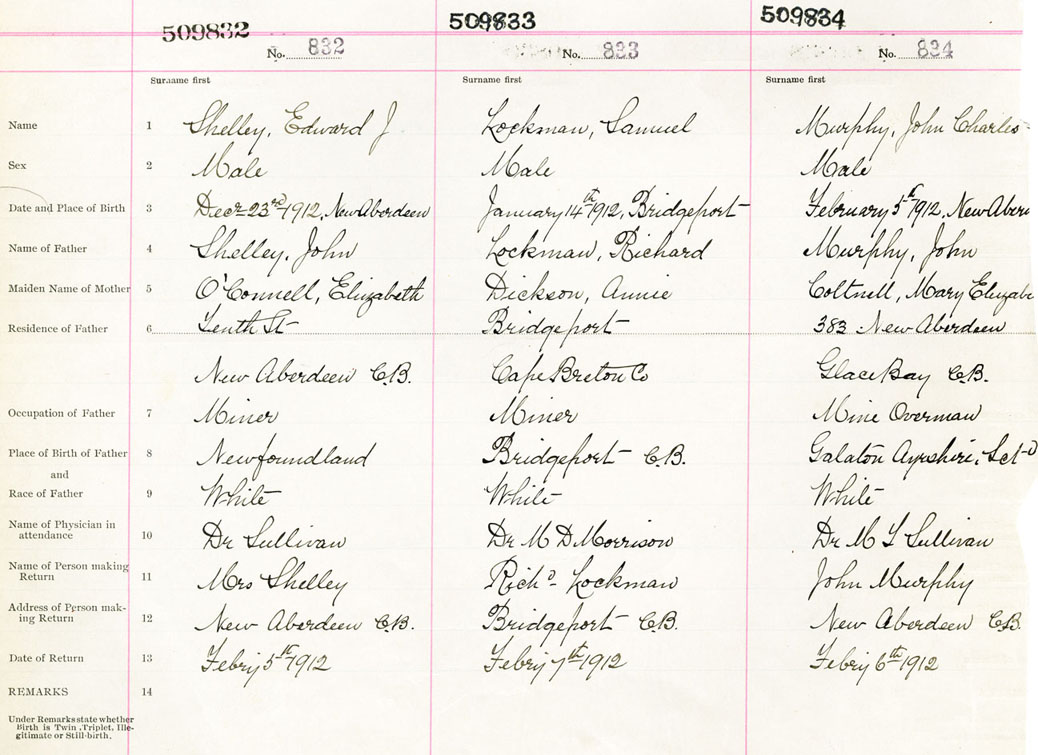 509832 509833 509834
No. 832 No. 833 No. 834
Surname first Surname first Surname first
Name 1 Shelley, Edward J Lockman, Samuel Murphy, John Charles
Sex 2 Male Male Male
Date and Place of Birth 3 Decr 23rd 1912, New Aberdeen January 14th 1912, Bridgeport February 5th 1912, New Aber
Name of Father 4 Shelley, John Lockman, Richard Murphy, John
Maiden Name of Mother 5 O'Connell, Elizabeth Dickson, Annie Coltnell, Mary Elizabe
Residence of Father 6 Tenth St Bridgeport 383 New Aberdeen
New Aberdeen C.B. Cape Breton Co Glace Bay C.B.
Occupation of Father 7 Miner Miner Mine Overman
Place of Birth of Father 8 Newfoundland Bridgeport C.B. Galaton Ayrshire, Sctd
and
Race of Father 9 White White White
Name of Physician in
attendance 10 Dr Sullivan Dr M D Morrison Dr M T Sullivan
Name of Person making
Return 11 Mrs Shelley Richd Lockman John Murphy
Address of Person mak-
ing Return 12 New Aberdeen C.B. Bridgeport C.B. New Aberdeen C.B.
Date of Return 13 Febry 5th 1912 Febry 7th 1912 Febry 6th 1912
REMARKS 14
Under Remarks state whether
Birth is Twin, Triplet, Ille-
gitimate or Still-birth.